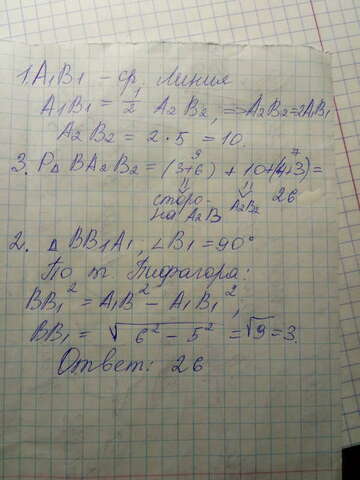 1. A₁B₁ – ср. линия
A₁B₁ = 1/2 A₂B₂, => A₂B₂=2A₁B₁
A₂B₂ = 2·5 = 10.
9 7
3. P△ BA₂B₂ = (3+6) + 10+(4+3)=
= = 26
сторо- A₂B₂
на A₂B
2. △ BB₁A₁, ∠B₁ = 90°
По т. Пифагора:
BB₁² = A₁B² – A₁B₁²;
BB₁ = √6² – 5² = √9 = 3.
Ответ: 26